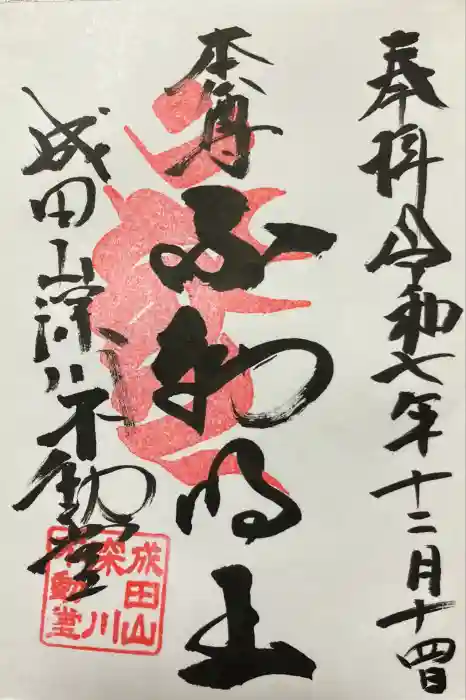 奉拝 令和七年十二月十四日
本尊 不動明王
成田山深川不動堂
成田山
深川
不動堂